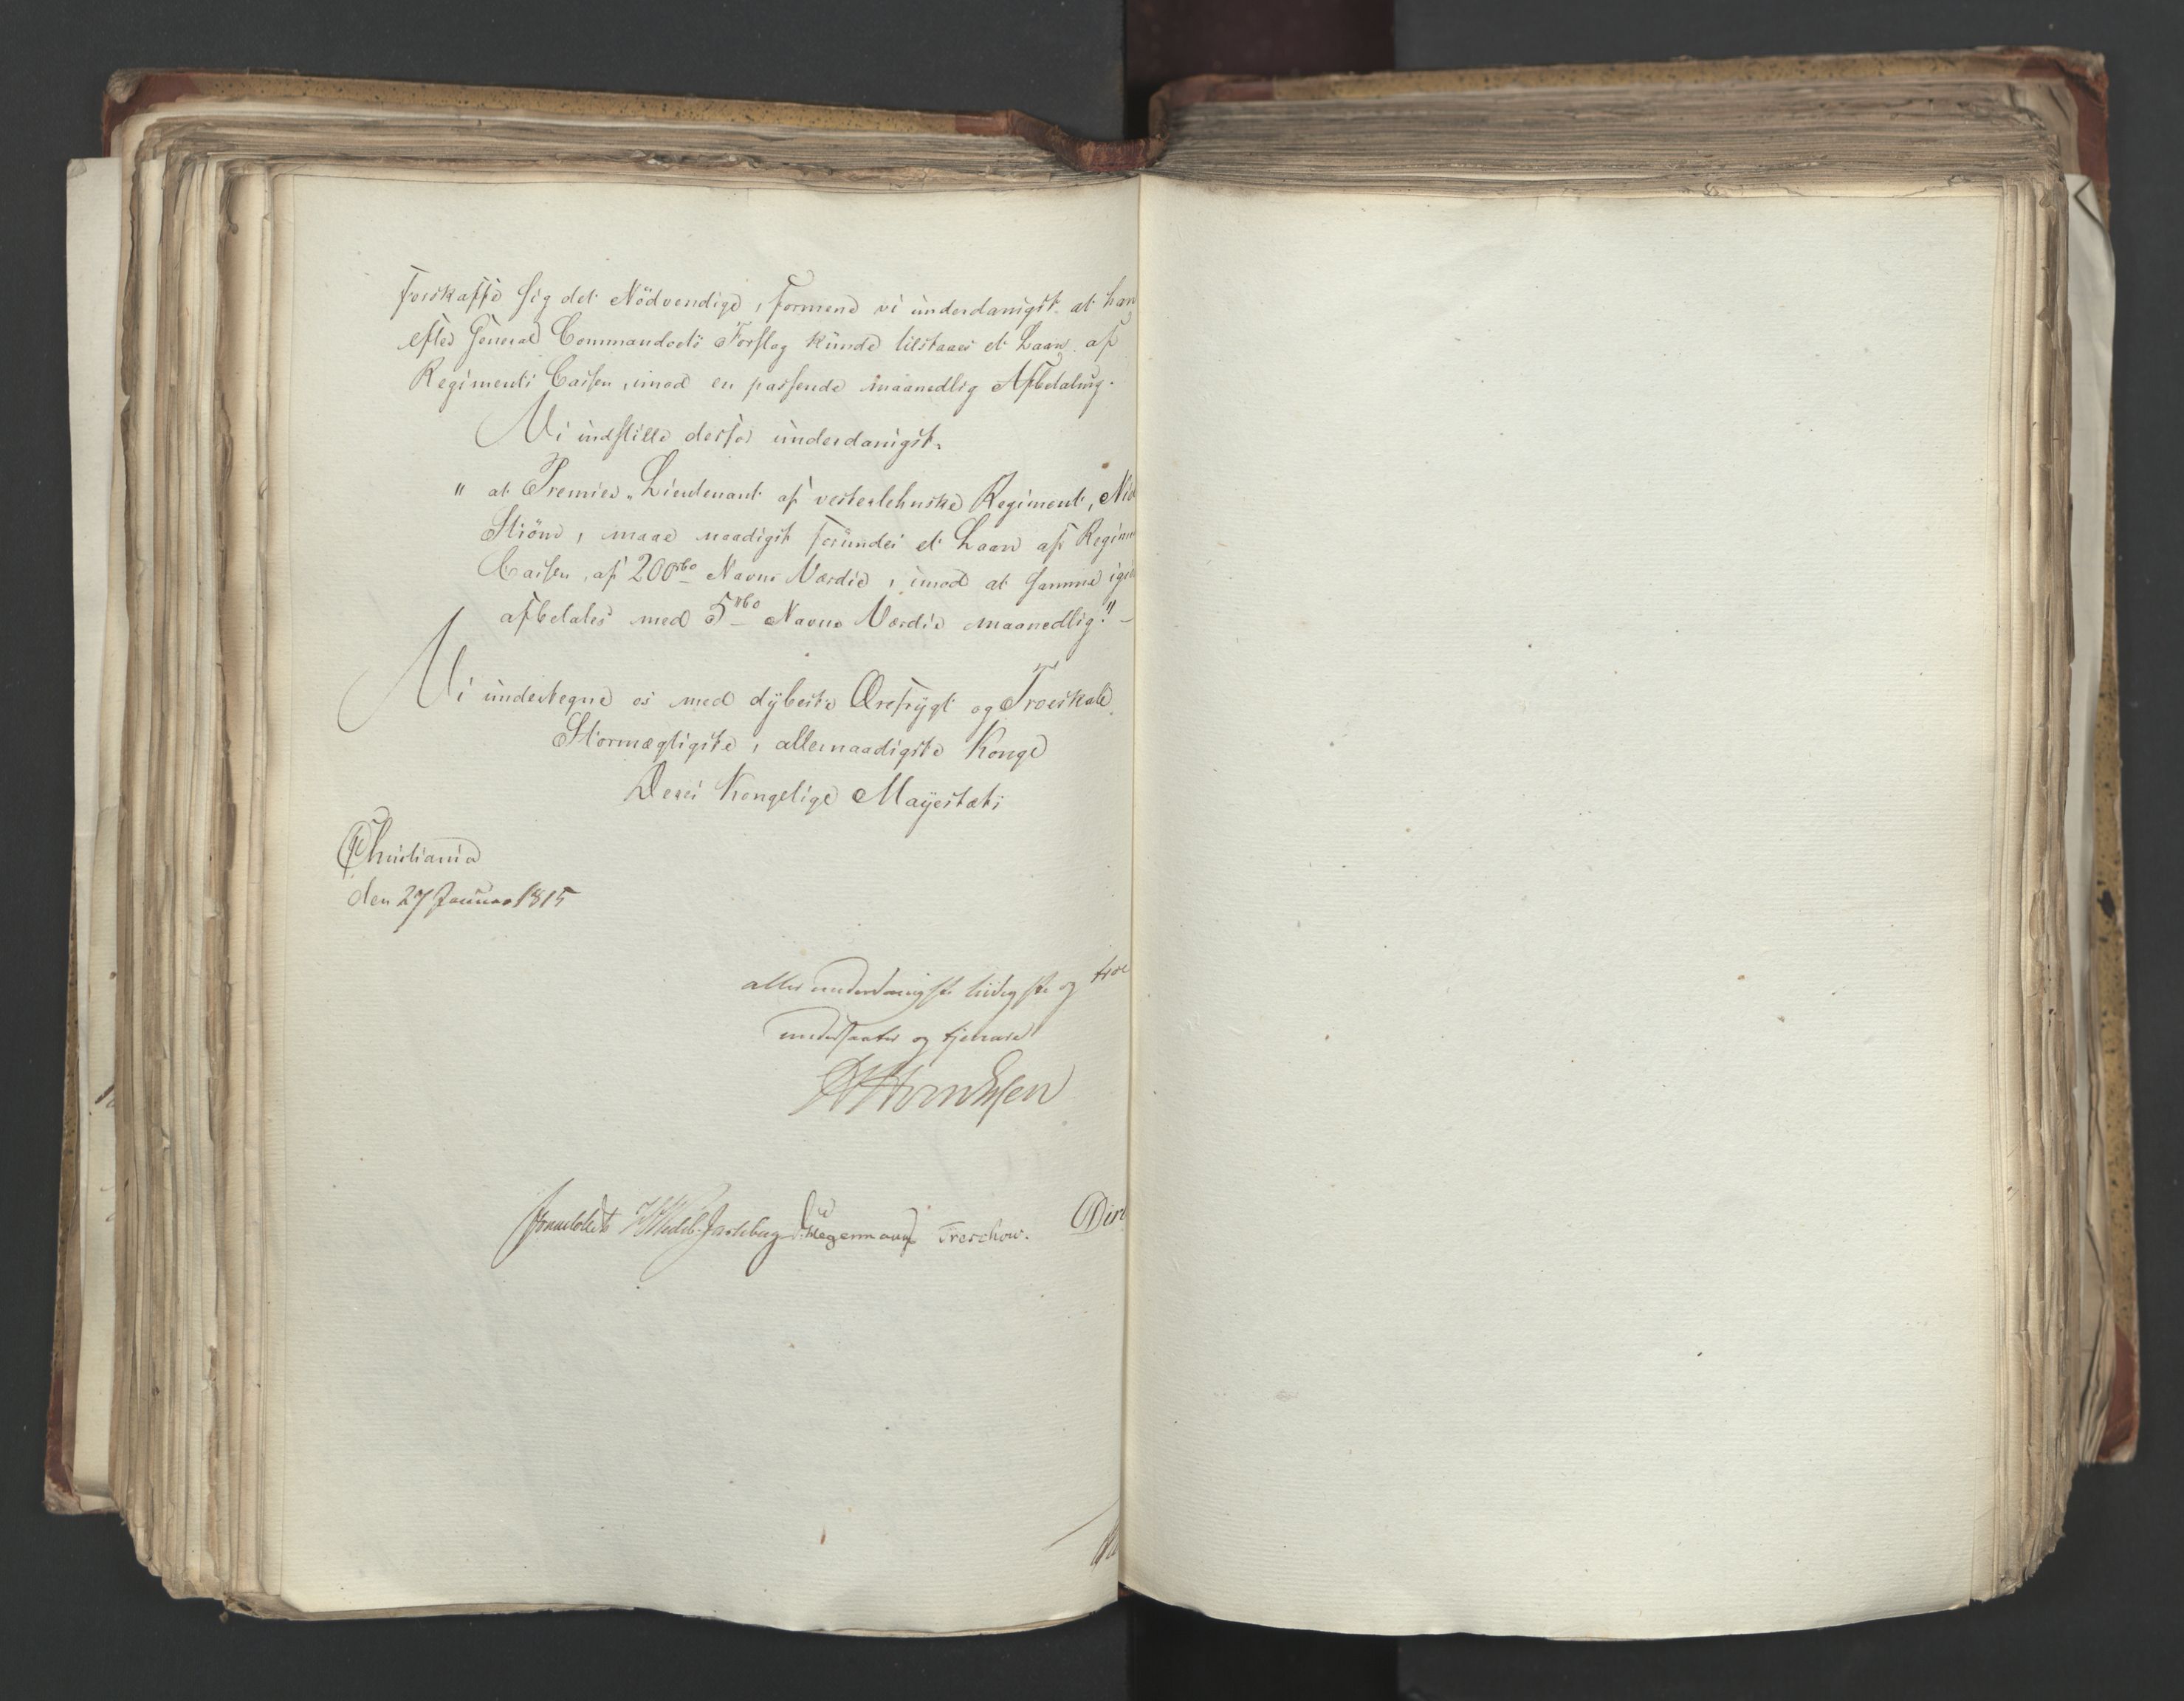 forskaffe sig det Nödvendige, formene vi underdanigst at han
efter General Commandoets Forslag kunde tilstaaes et Laan af
Regiments Cassen, imod en passende maanedlig Afbetaling.
Vi indstille derfor underdanigst.
" at Premier-Lieutenant af vesterlehnske Regiment,
Stiönd, maae naadigst forundes et Laan af Regim
Cassen, af 200 rbd Navne Værdie, imod at samme igie
afbetales med 5 rbd Navne Værdie maanedlig." -
Vi undertegne os med dybeste Ærefrygt og Troeskab
Stormægtigste, allernaadigste Konge
Deres Kongelige Mayestæts
Christiania
den 27 Januar 1815
aller underdanigste lydigste og troe
undersaatter og tjenere
Sommerhielm HWedel-Jarlsberg D. Hegermann Treschow.